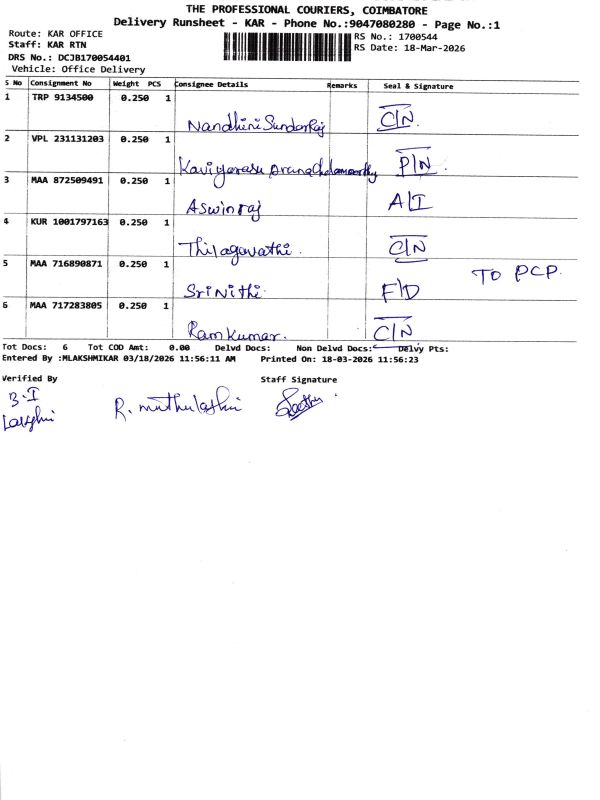 THE PROFESSIONAL COURIERS, COIMBATORE
Delivery Runsheet - KAR - Phone No.:9047080280 - Page No.:1
Route: KAR OFFICE
Staff: KAR RTN
DRS No.: DCJB170054401
Vehicle: Office Delivery
RS No.: 1700544
RS Date: 18-Mar-2026
S No Consignment No Weight PCS Consignee Details Remarks Seal & Signature
1 TRP 9134500 0.250 1
Nandhini Sundarraj C/N
2 VPL 231131203 0.250 1
Kaviyarasu Arunachalamoorthy P/N
3 MAA 872509491 0.250 1
Aswinraj A/I
4 KUR 1001797163 0.250 1
Thilagavathi C/N
5 MAA 716890871 0.250 1
Sri Nithi F/D TO PCP
6 MAA 717283805 0.250 1
Ram Kumar. C/N
Tot Docs: 6 Tot COD Amt: 0.00 Delvd Docs: Non Delvd Docs: Delvy Pts:
Entered By :MLAKSHMIKAR 03/18/2026 11:56:11 AM Printed On: 18-03-2026 11:56:23
Verified By Staff Signature
B.I
R. muthulakshmi